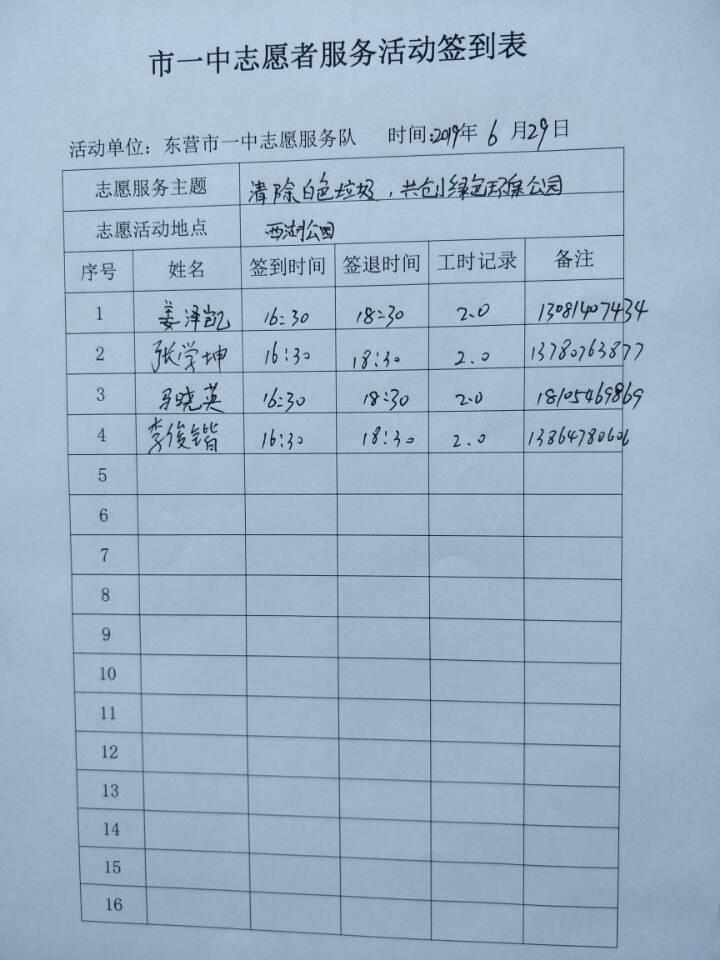 市一中志愿者服务活动签到表
活动单位：东营市一中志愿服务队 时间:2019年 6 月29日
志愿服务主题 清除白色垃圾，共创绿色环保公园
志愿活动地点 西湖公园
序号 姓名 签到时间 签退时间 工时记录 备注
1 姜泽凯 16:30 18:30 2.0 13081407434
2 张学坤 16:30 18:30 2.0 13780763877
3 马晓英 16:30 18:30 2.0 18105469869
4 李俊锴 16:30 18:30 2.0 13864780606
5
6
7
8
9
10
11
12
13
14
15
16